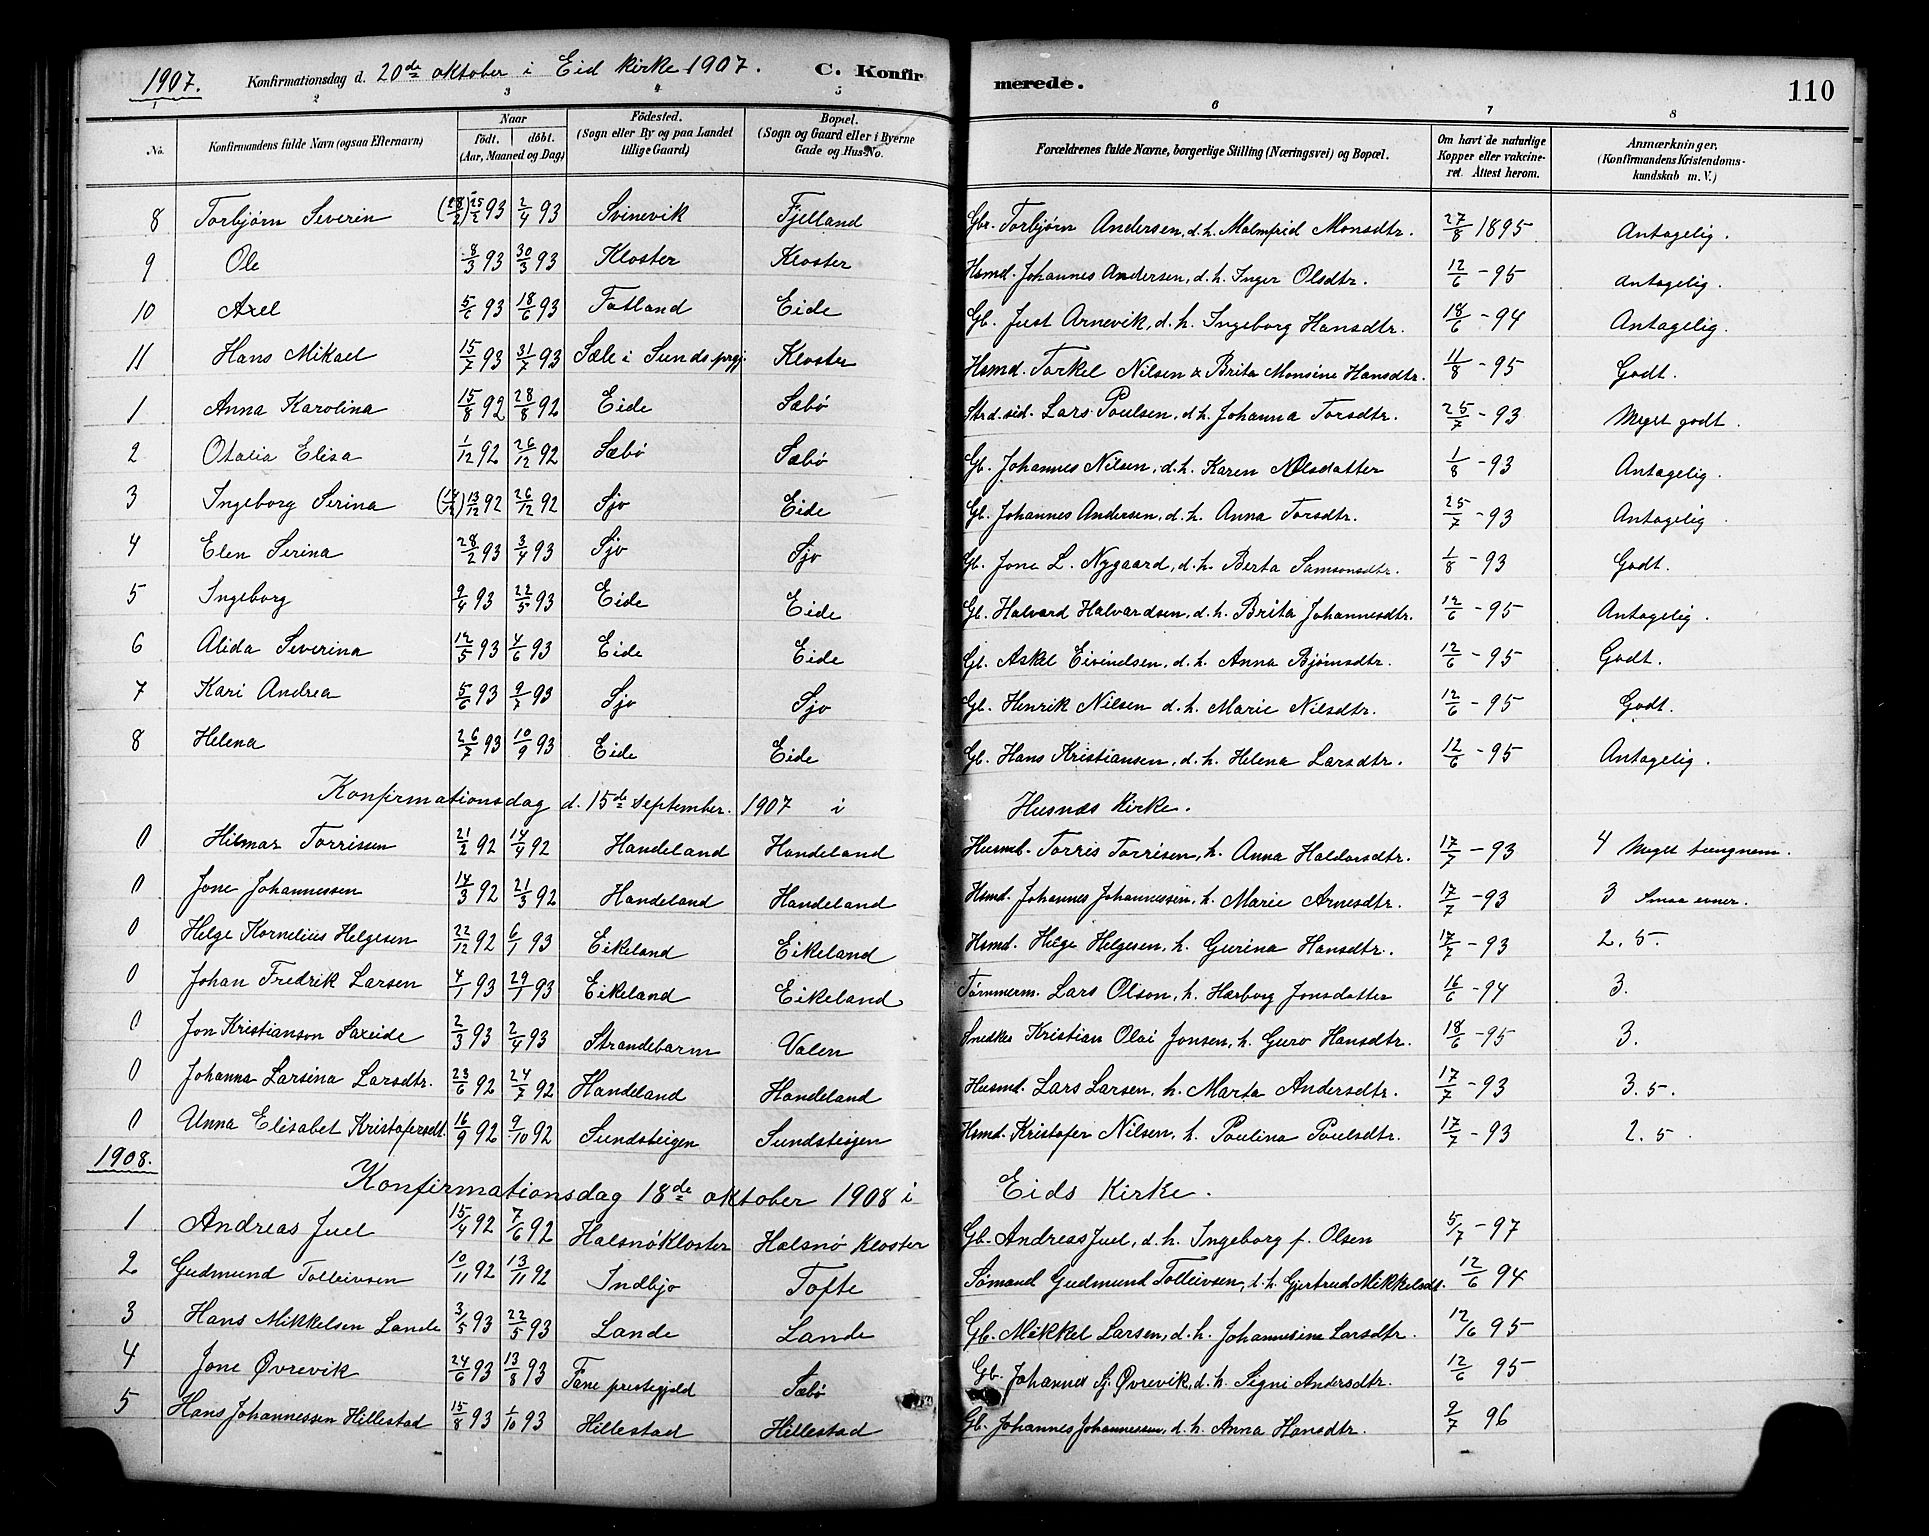 1907. Konfirmationsdag d. 20de oktober i Eid Kirke 1907. C. Konfirmerede. 110
1 2 3 4 5 6 7 8
No. Konfirmandens fulde Navn (ogsaa Efternavn) Naar født. døbt. (Aar, Maaned og Dag) Fødested. (Sogn eller By og paa Landet tillige Gaard) Bopæl. (Sogn og Gaard eller i Byerne Gade og Hus-No. Forældrenes fulde Navne, borgerlige Stilling (Næringsvei) og Bopæl. Om havt de naturlige Kopper eller vakcineret. Attest herom. Anmærkninger. (Konfirmandens Kristendomskundskab m. V.)
8 Torbjørn Severin (28/2) 25/2 93 2/4 93 Svinevik Fjelland Gbr. Torbjørn Andersen, d. h. Malmfrid Monsdtr. 27/8 1895 Antagelig.
9 Ole 8/3 93 30/3 93 Kloster Kloster Hsmd. Johannes Andersen, d. h. Inger Olsdtr. 12/6 - 95 Antagelig.
10 Axel 5/6 93 18/6 93 Fatland Eide Gb. Just Arnevik, d. h. Ingeborg Hansdtr. 18/6 - 94 Antagelig.
11 Hans Mikael 15/7 93 31/7 93 Sæle i Sunds prgj. Kloster Hsmd. Torkel Nilsen & Brita Monsine Hansdtr. 11/8 - 95 Godt.
1 Anna Karolina 15/8 92 28/8 92 Eide Sæbø Strd.sid. Lars Poulsen, d. h. Johanna Torsdtr. 25/7 - 93 Meget godt.
2 Otalia Elisa 1/12 92 26/12 92 Sæbø Sæbø Gb. Johannes Nilsen, d. h. Karen Olsdatter 1/8 - 93 Antagelig.
3 Ingeborg Serina 13/12 92 26/12 92 Sjo Eide Gb. Johannes Andersen, d. h. Anna Torsdtr. 25/7 - 93 Antagelig
4 Elen Serina 28/2 93 3/4 93 Sjo Sjo Gb. Jone L. Nygaard, d. h. Berta Samsonsdtr. 1/8 - 93 Godt.
5 Ingeborg 9/4 93 22/5 93 Eide Eide Gb. Halvard Halvardsen, d. h. Brita Johannesdtr. 12/6 - 95 Antagelig.
6 Alida Severina 12/5 93 4/6 93 Eide Eide Gb. Askel Eivindsen, d. h. Anna Bjørnsdtr. 12/6 - 95 Godt.
7 Kari Andrea 5/6 93 9/7 93 Sjo Sjo Gb. Henrik Nilsen d. h. Marie Nilsdtr. 12/6 - 95 Godt.
8 Helena 26/7 93 10/9 93 Eide Eide Gb. Hans Kristiansen, d. h. Helena Larsdtr. 12/6 - 95 Antagelig.
Konfirmationsdag d. 15de september. 1907 i Husnæs Kirke.
0 Hilmar Torrissen 21/2 92 14/4 92 Handeland Handeland Husmd. Torris Torrisen, h. Anna Haldorsdtr. 17/7 - 93 4 Meget tungnem.
0 Jone Johannessen 14/3 92 21/3 92 Handeland Handeland Hsmd. Johannes Johannessen, h. Marie Arnesdtr. 17/7 - 93 3 Smaa evner.
0 Helge Kornelius Helgesen 22/12 92 6/1 93 Eikeland Eikeland Hsmd. Helge Helgesen, h. Gurina Hansdtr. 17/7 - 93 2,5.
0 Johan Fredrik Larsen 4/1 93 29/1 93 Eikeland Eikeland Tømmerm. Lars Olson, h. Hærborg Jonsdatter 16/6 - 94 3.
0 Jon Kristianson Saxeide 2/3 93 2/4 93 Strandebarm Valen Snedker Kristian Olai Jonsen, h. Guro Hansdtr. 18/6 - 95 3.
0 Johanna Larsina Larsdtr. 23/6 92 24/7 92 Handeland Handeland Husmd. Lars Larsen, h. Marta Andersdtr. 17/7 - 93 3.5.
0 Unna Elisabet Kristofersdt. 16/9 92 9/10 92 Sundsteigen Sundsteigen Hsmd. Kristofer Nilsen, h. Poulina Poulsdtr. 17/7 - 93 2.5.
1908. Konfirmationsdag 18de oktober 1908 i Eids Kirke.
1 Andreas Juel 15/4 92 7/6 92 Halsnø Kloster Halsnø Kloster Gb. Andreas Juel, d. h. Ingeborg f. Olsen 5/7 - 97
2 Gudmund Tolleivsen 10/11 92 13/11 92 Indbjo Tofte Sømand Gudmund Tolleivsen, d. h. Gjertrud Mikkelsdt. 12/6 94
3 Hans Mikkelsen Lande 3/5 93 22/5 93 Lande Lande Gb. Mikkel Larsen, d. h. Johannesine Larsdtr. 12/6 95
4 Jone Øvrevik 24/6 93 13/8 93 Fane prestegjeld Sæbø Gb. Johannes Øvrevik, d. h. Signi Andersdtr. 12/6 95
5 Hans Johannessen Hillestad 15/8 93 1/10 93 Hillestad Hillestad Gb. Johannes Johannessen, d. h. Anna Hansdtr. 9/7 96